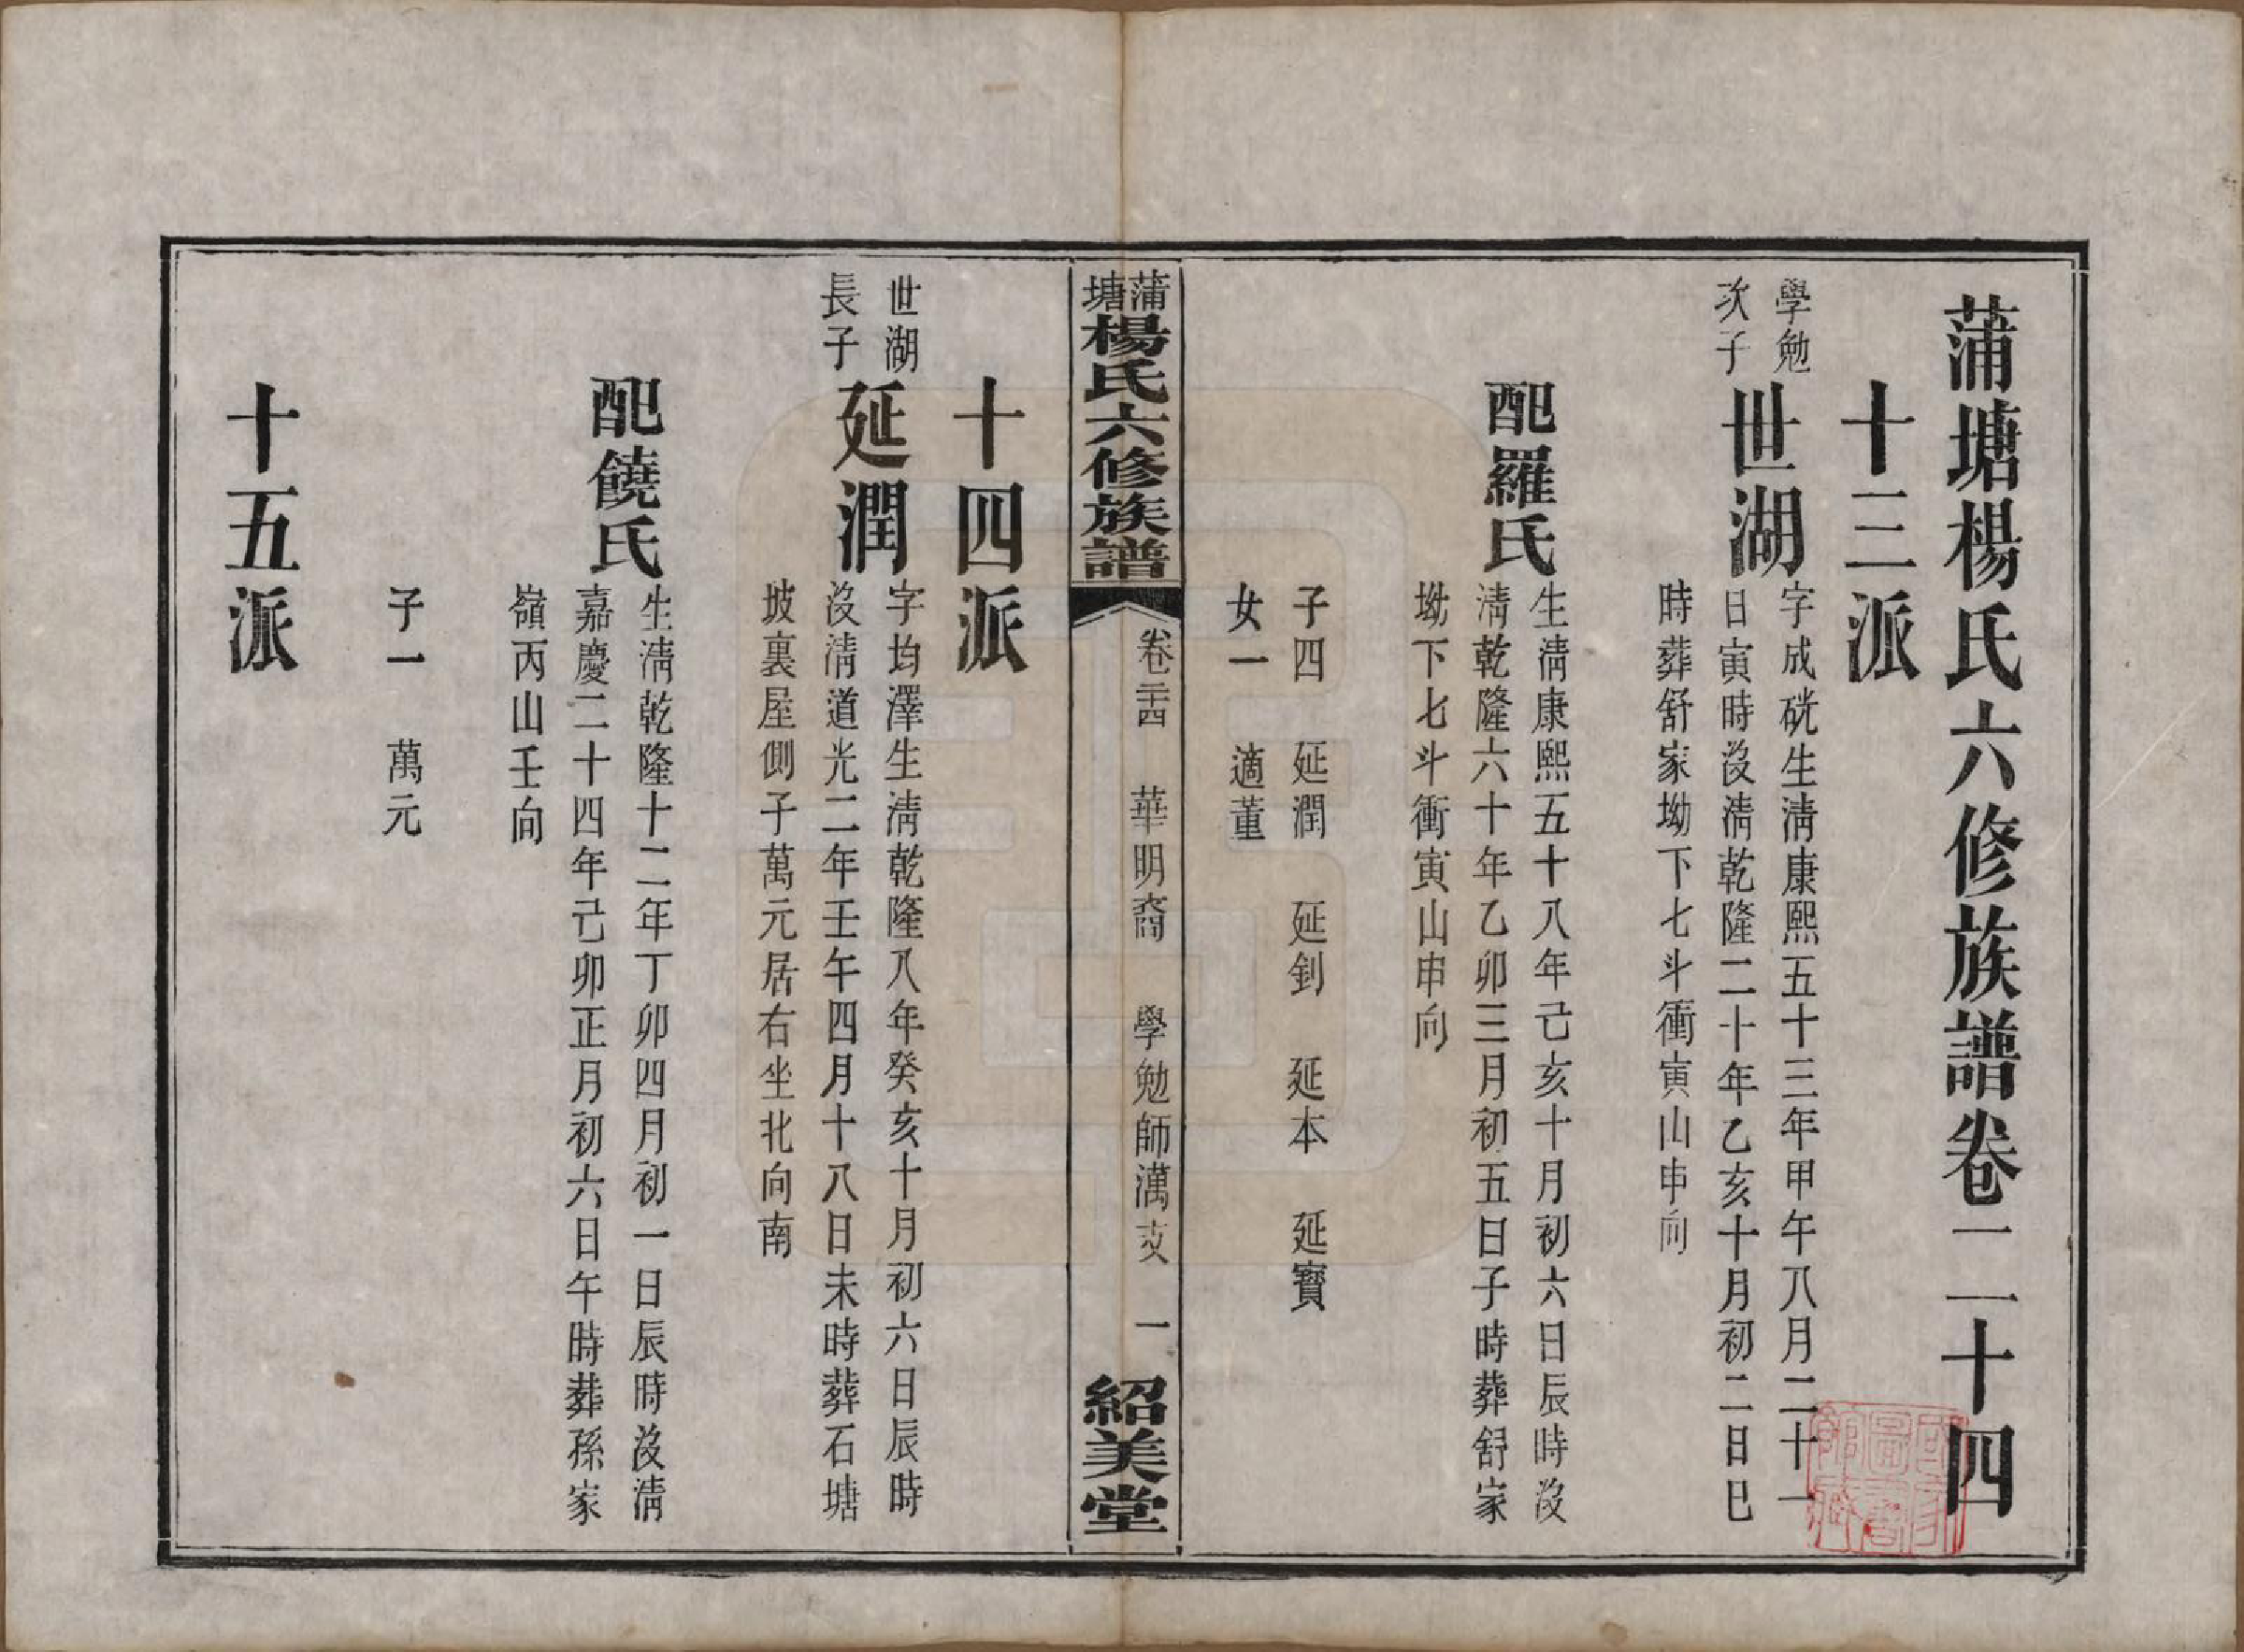 蒲塘楊氏六修族譜卷二十四
十三派
學勉
次子
世湖
字成硄生淸康熙五十三年甲午八月二十一
日寅時沒淸乾隆二十年乙亥十月初二日巳
時葬舒家坳下七斗衝寅山申向
配羅氏
生淸康熙五十八年己亥十月初六日辰時沒
淸乾隆六十年乙卯三月初五日子時葬舒家
坳下七斗衝寅山申向
子四 延潤 延釗 延本 延寶
女一 適董
蒲塘楊氏六修族譜
卷二十四 華明裔 學勉師萬支 一
紹美堂
十四派
世湖
長子
延潤
字均澤生淸乾隆八年癸亥十月初六日辰時
沒淸道光二年壬午四月十八日未時葬石塘
坡裏屋側子萬元居右坐北向南
配饒氏
生淸乾隆十二年丁卯四月初一日辰時沒淸
嘉慶二十四年己卯正月初六日午時葬孫家
嶺丙山壬向
子一 萬元
十五派
國家圖書館藏